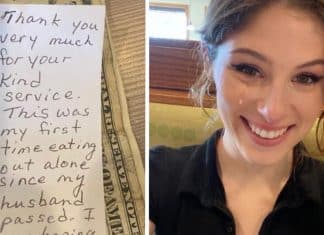 Thank you
very much
for your
kind
service.
This was
my first
time eating
out alone
since my
husband
passed. I